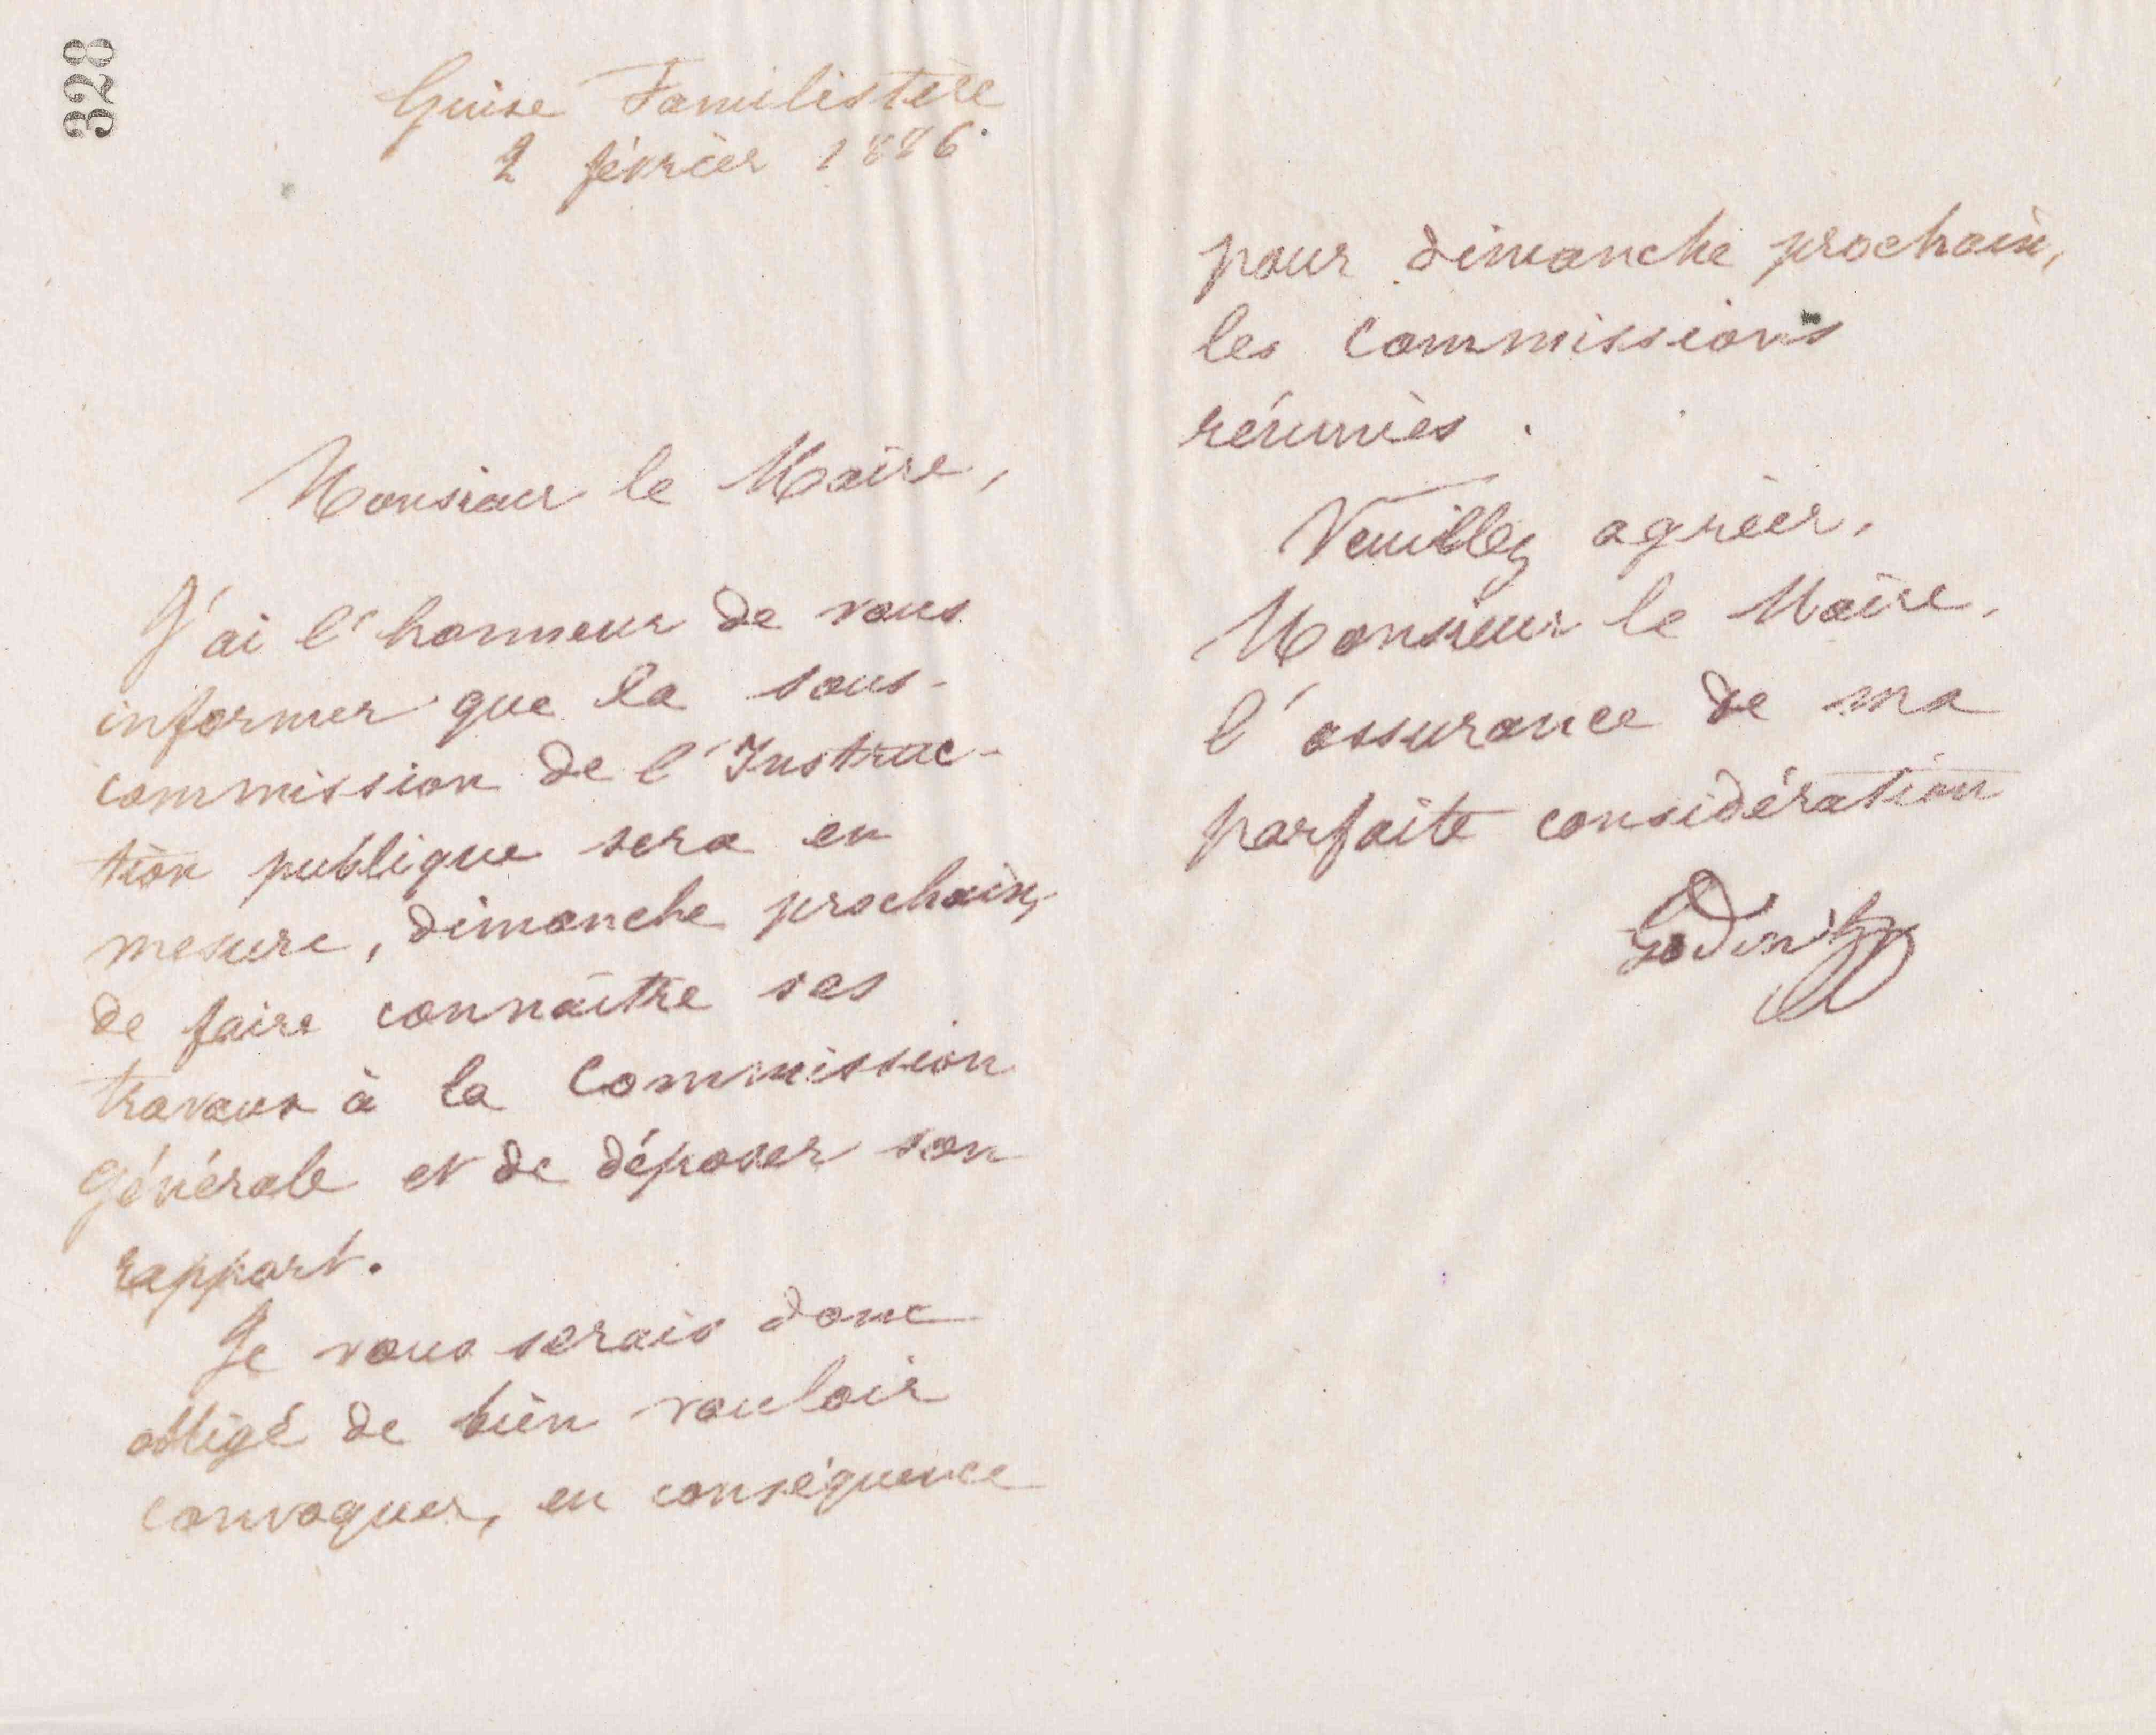 328
Guise Familistère
2 février 1886
Monsieur le Maire,
J'ai l'honneur de vous
informer que la sous-
commission de l'Instruc-
tion publique sera en
mesure, dimanche prochain,
de faire connaître ses
travaux à la Commission
Générale et de déposer son
rapport.
Je vous serais donc
obligé de bien vouloir
convoquer, en conséquence
pour dimanche prochain,
les Commissions
réunies.
Veuillez agréer,
Monsieur le Maire,
l'assurance de ma
parfaite considération
Godin